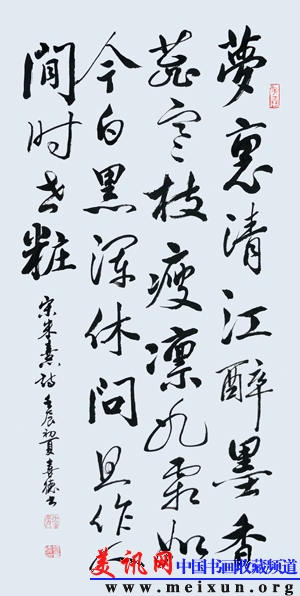 夢裏清江醉墨香
蕊寒枝瘦凛冰霜如
今白黑浑休问且作人
間时世粧
宋朱熹诗 壬辰初夏喜德书
美讯网 中国书画收藏频道
www.meixun.org